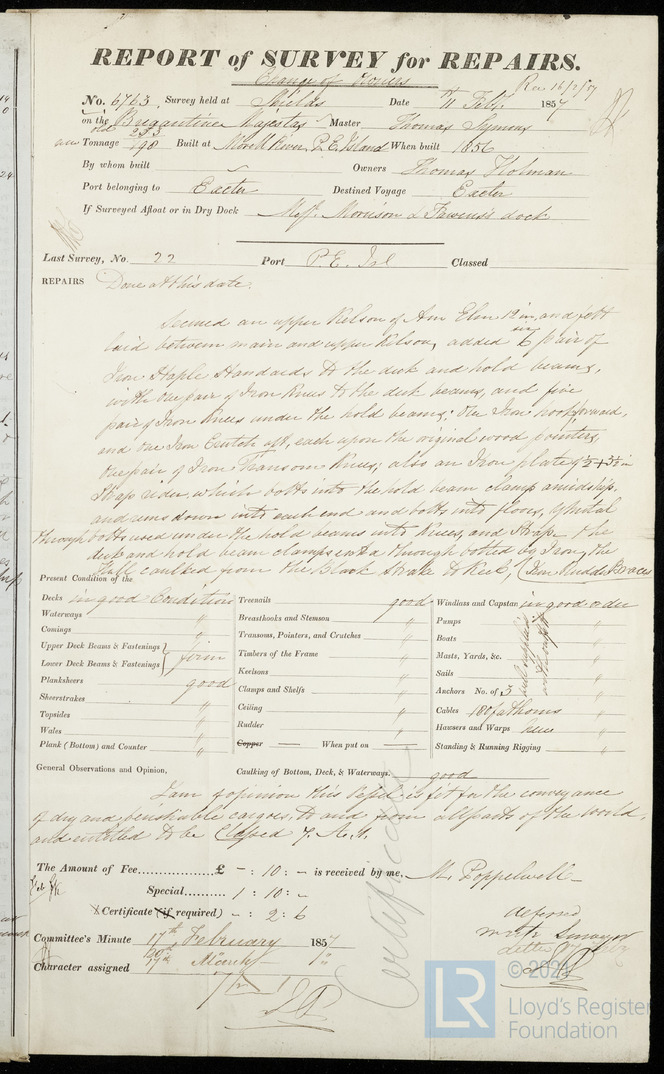 REPORT of SURVEY for REPAIRS.
Change of Owners
Rec 16/2/57
No. 6763 Survey held at Shields Date 11 Feby. 1857
on the Bregantine Majestas Master Thomas Symons
old 233
Tonnage 198 Built at Morell River, P. E. Island When built 1856
By whom built Owners Thomas Holman
Port belonging to Exeter Destined Voyage Exeter
If Surveyed Afloat or in Dry Dock Messrs. Morrison & dock
Last Survey, No. 22 Port P. E. Isl Classed
REPAIRS Done at this date.
Secured an upper Kelson of Am Elm 12 in, and felt
laid between main and upper Kelson, added six pair of
Iron Staple Standards to the deck and hold beams,
with one pair of Iron Knees to the deck beams, and five
pair of Iron Knees under the hold beams; One Iron hook forward,
and one Iron Crutch aft, each upon the original wood pointers,
One pair of Iron Transom Knees; also an Iron plate
Strap rider, which bolts into the hold beam clamp amidships,
and runs down into each end and bolts into floors,
through bolts used under the hold beams into Knees, and Straps the
deck and hold beam clamps through bolted by Iron, the
Hull caulked from the Black Strake to Keel, (Iron Rudder Braces
Present Condition of the
Decks in good Condition Treenails good Windlass and Capstan in good order
Waterways " Breasthooks and Stemson " Pumps "
Comings " Transoms, Pointers, and Crutches " Boats "
Upper Deck Beams & Fastenings } firm Timbers of the Frame " Masts, Yards, &c. "
Lower Deck Beams & Fastenings Keelsons " Sails "
Planksheers good Clamps and Shelfs " Anchors No. of 3 "
Sheerstrakes " Ceiling " Cables 180 fathoms "
Topsides " Rudder " Hawsers and Warps new "
Wales " Copper — When put on — Standing & Running Rigging "
Plank (Bottom) and Counter "
General Observations and Opinion, Caulking of Bottom, Deck, & Waterways. good
I am of opinion this Vessel is fit for the conveyance
of dry and perishable cargoes, to and from all parts of the World,
and entitled to be Classed 7. A. 1.
The Amount of Fee £ - : 10 : - is received by me, M. Poppelwell
Special 1 : 10 : -
Certificate (if required) - : 2 : 6
Certificate
deferred
Surveyor
Committee's Minute 17th February 1857
Character assigned March
© 202
LR
Lloyd's Register
Foundation